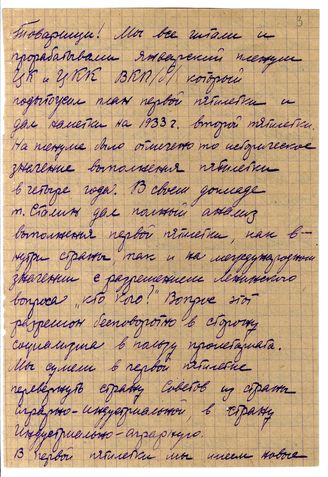 3
Товарищи! Мы все читали и
прорабатывали январский пленум
ЦК и ЦКК ВКП/б/ который
подытожил план первой пятилетки и
дал наметки на 1933 г. второй пятилетки.
На пленуме было отмечено то историческое
значение выполнения пятилетки
в четыре года. В своем докладе
т. Сталин дал полный анализ
выполнения первой пятилетки, как в-
нутри страны, так и на международном
значении с разрешением Ленинского
вопроса „Кто Кого?" Вопрос этот
разрешон бесповоротно в сторону
социализма в пользу пролетариата.
Мы сумели в первой пятилетке
перевернуть страну Советов из страны
аграрно-индустриальной, в страну
индустриально-аграрную.
В первой пятилетки мы имеем новые